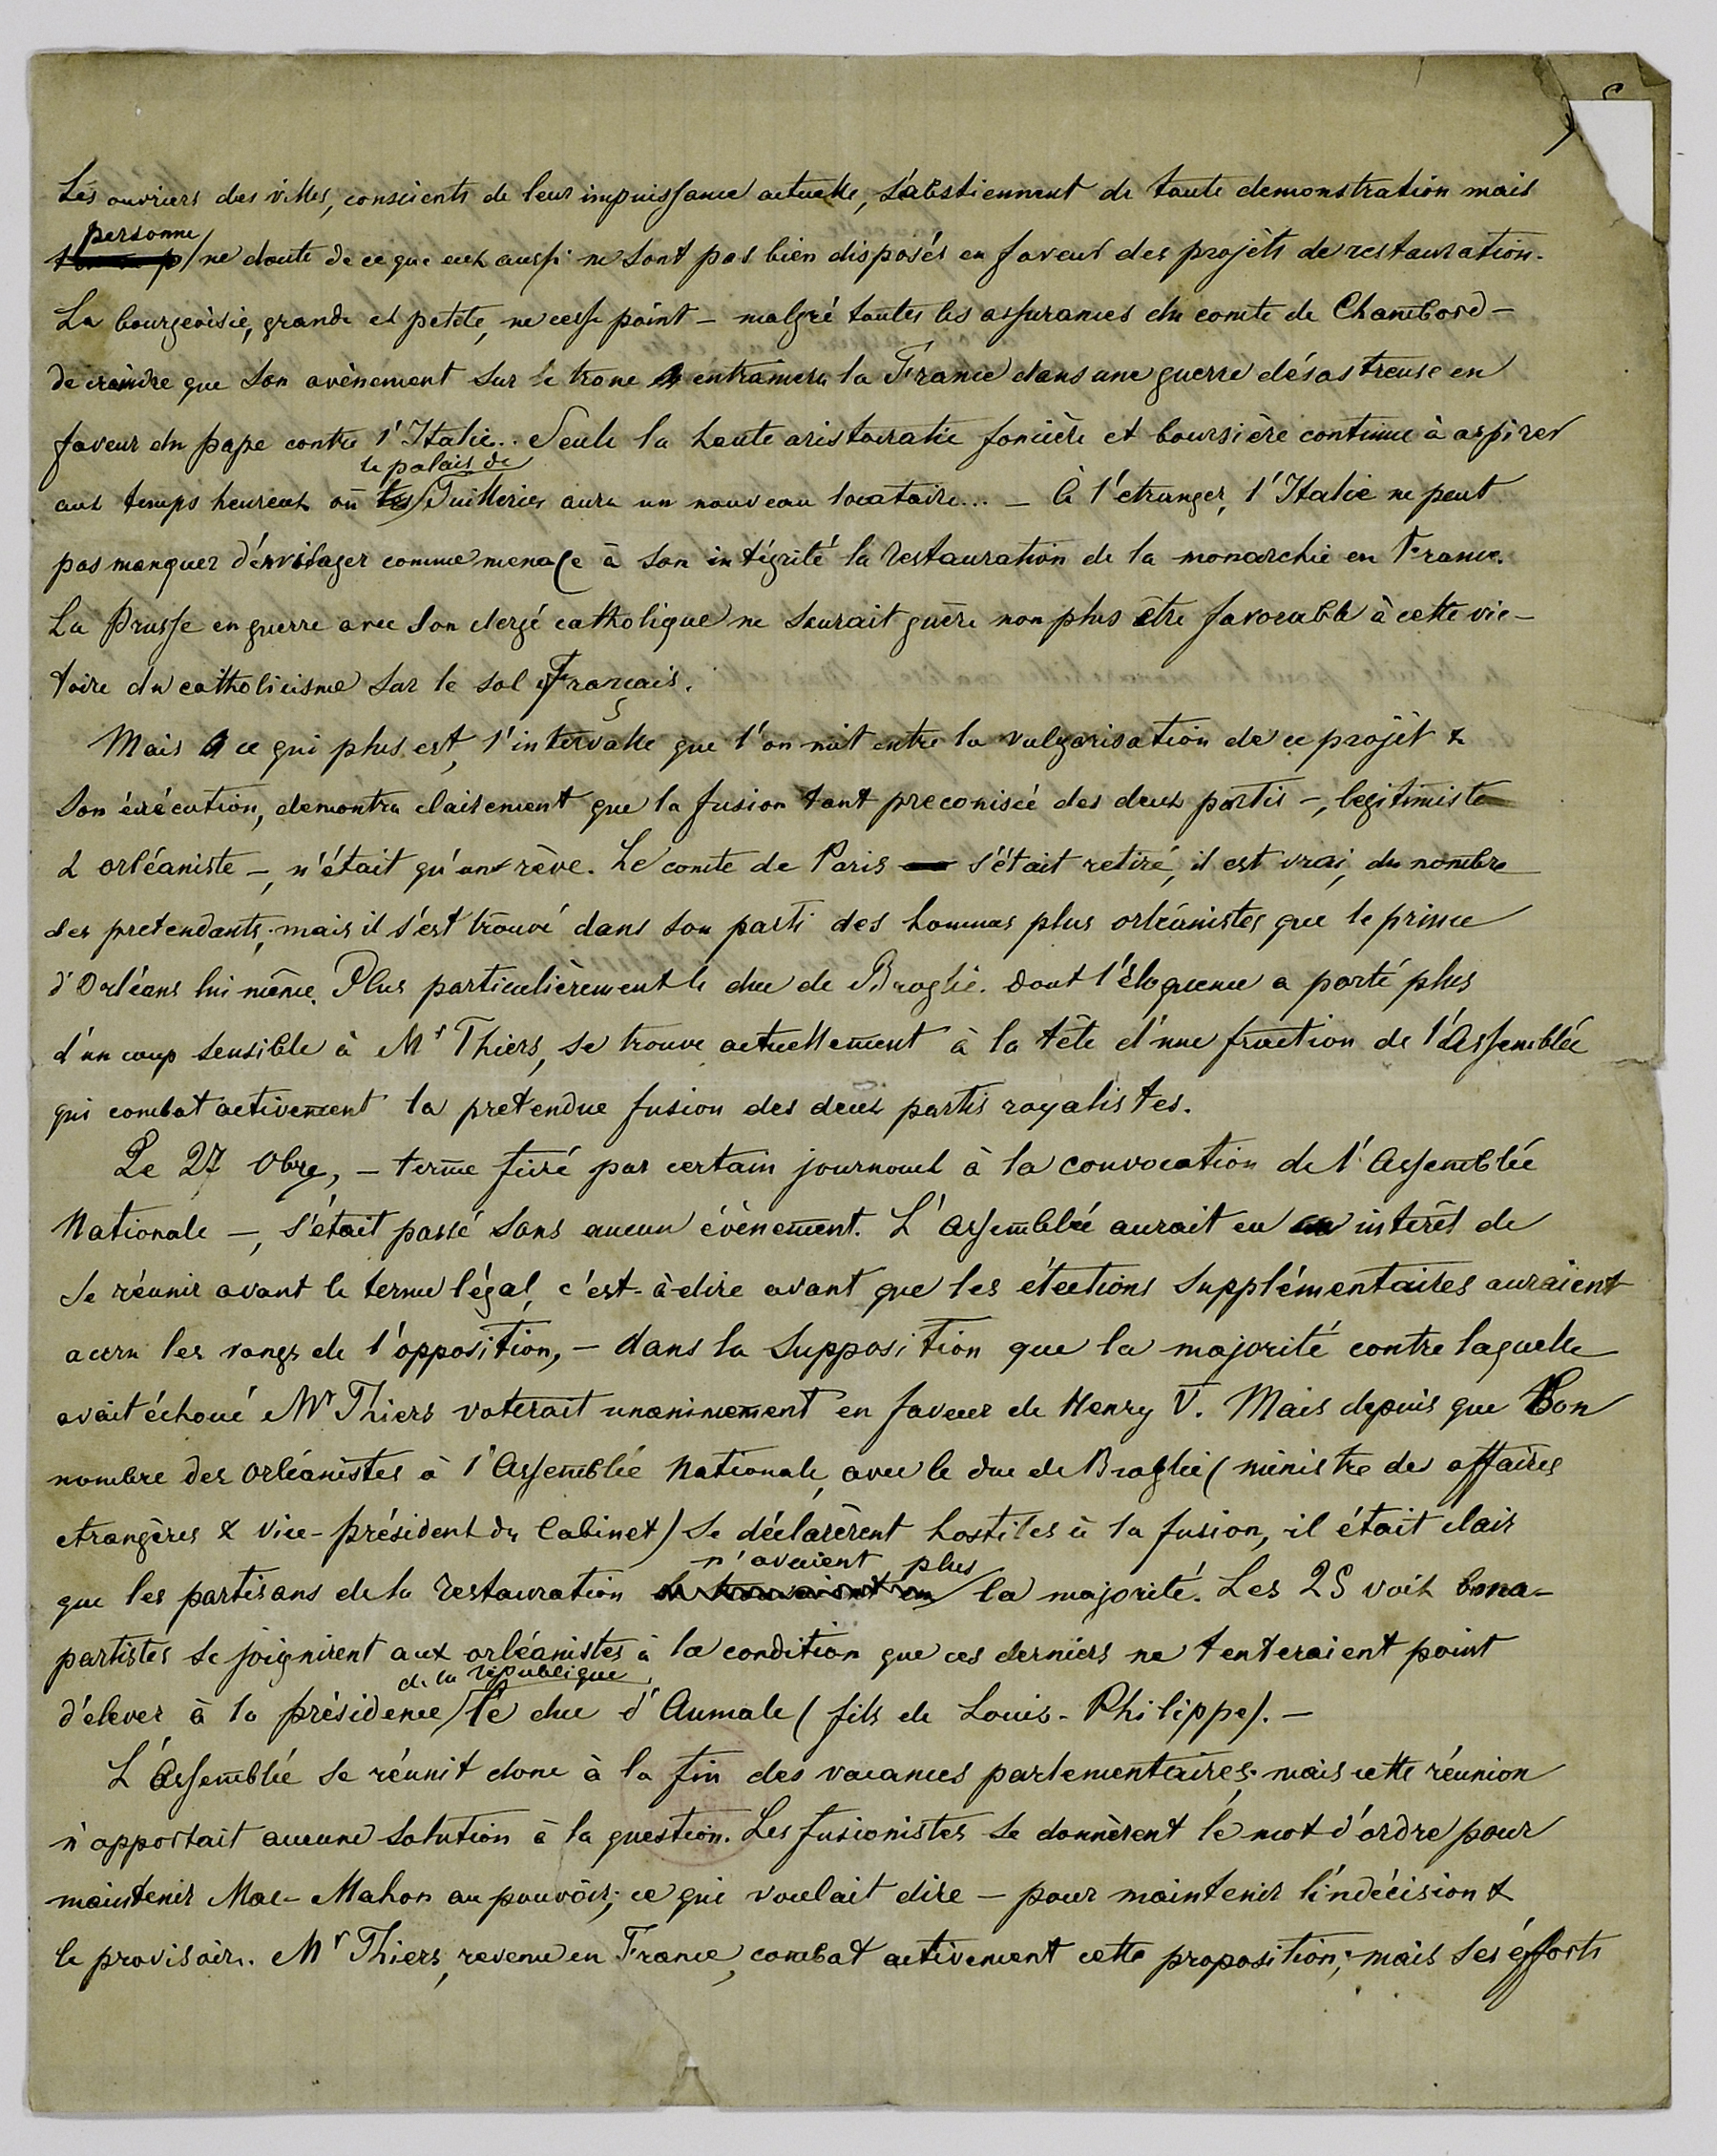 Les ouvriers des villes, conscients de leur impuissance actuelle, s'abstiennent de toute demonstration mais
personne
ne doute de ce que eux aussi ne sont pas bien disposés en faveur des projèts de restauration.
La bourgeoisie, grande et petite, ne cesse point – malgré toutes les assurances du comte de Chambord –
de craindre que son avènement sur le trone entrainera la France dans une guerre désastreuse en
faveur du pape contre l'Italie.. Seule la haute aristocratie foncière et boursière continue à aspirer
le palais de
aux temps heureux où les Tuilleries aura un nouveau locataire... – à l'etranger, l'Italie ne peut
pas manquer d'envisager comme menace à son intégrité la restauration de la monarchie en France.
La Prusse en guerre avec son clergé catholique ne saurait guère non plus être favorable à cette vic-
toire du catholicisme sur le sol Français.
Mais ce qui plus est, l'intervalle que l'on mit entre la vulgarisation de ce projèt &
son éxécution, demontra clairement que la fusion tant preconiseé des deux partis –, legitimiste
& orléaniste –, n'était qu'un rève. Le comte de Paris s'était retiré, il est vrai, du nombre
des pretendants; mais il s'est trouvé dans son parti des hommes plus orléanistes que le prince
d'Orléans lui même. Plus particulièrement le duc de Broglie. dont l'éloquence a porté plus
d'un coup sensible à Mr Thiers, se trouve actuellement à la tête d'une fraction de l'Assemblée
qui combat activement la pretendue fusion des deux partis royalistes.
Le 27 8bre, – terme fixé par certain journaux à la convocation de l'Assemblée
Nationale –, s'était passé sans aucun évènement. L'Assemblée aurait eu intérêt de
se réunir avant le terme légal, c'est-à-dire avant que les élections supplémentaires auraient
accru les rangs de l'opposition, – dans la supposition que la majorité contre laquelle
avait échoué Mr Thiers voterait unanimement en faveur de Henry V. Mais depuis que bon
nombre des orléanistes à l'Assemblée Nationale, avec le duc de Broglie (ministre des affaires
etrangères & vice-président du Cabinet) se déclarèrent hostiles à la fusion, il était clair
n'avaient plus
que les partisans de la restauration la majorité. Les 25 voix bona-
partistes se joignirent aux orléanistes à la condition que ces derniers ne tenteraient point
de la république
d'élever à la présidence le duc d'Aumale (fils de Louis-Philippe). –
L'Assemblée se réunit donc à la fin des vacances parlementaires; mais cette réunion
n'apportait aucune solution à la question. Les fusionistes se donnèrent le mot d'ordre pour
maintenir Mac-Mahon au pouvoir; ce qui voulait dire – pour maintenir l'indécision &
le provisoire. Mr Thiers, revenu en France, combat activement cette proposition; mais ses éfforts